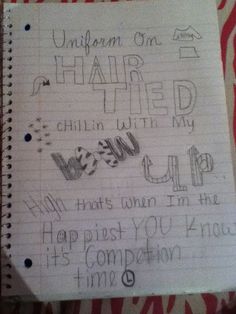 Uniform On
HAIR
TIED
chillin With My
bow
UP
High that's when I'm the
Happiest YOU Know
it's Competion
time